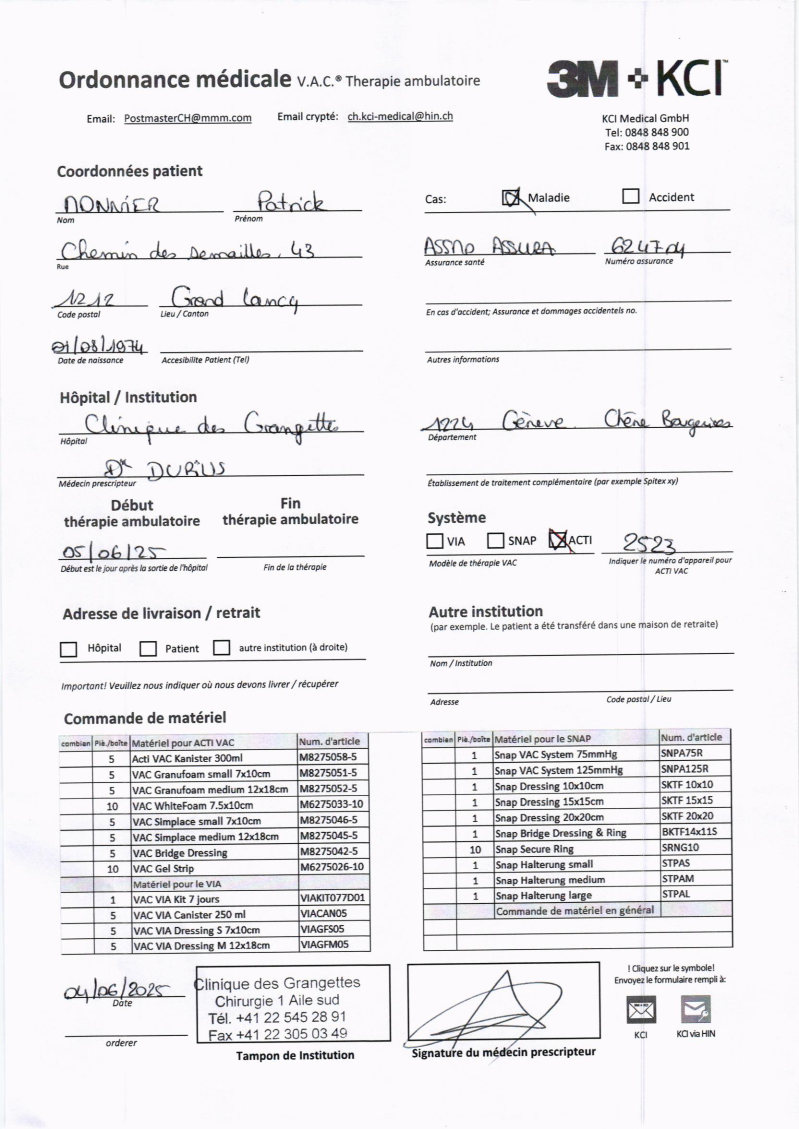 Ordonnance médicale V.A.C.® Therapie ambulatoire
3M KCI™
Email: PostmasterCH@mmm.com Email crypté: ch.kci-medical@hin.ch
KCI Medical GmbH
Tel: 0848 848 900
Fax: 0848 848 901
Coordonnées patient
Patrick
Nom Prénom
Cas: Maladie Accident
Chemin des Semailles, 43
Rue
ASSMO ASSURA 624704
Assurance santé Numéro assurance
1212 Grand Lancy
Code postal Lieu / Canton
En cas d'accident; Assurance et dommages accidentels no.
01/08/1974
Date de naissance Accesibilite Patient (Tel)
Autres informations
Hôpital / Institution
Clinique des Grangettes
Hôpital
1224 Génève Chêne Bougeries
Département
Dr
Médecin prescripteur
Établissement de traitement complémentaire (par exemple Spitex xy)
Début thérapie ambulatoire
Fin thérapie ambulatoire
05/06/25
Début est le jour après la sortie de l'hôpital Fin de la thérapie
Système
VIA SNAP ACTI 2523
Modèle de thérapie VAC Indiquer le numéro d'appareil pour ACTI VAC
Adresse de livraison / retrait
Hôpital Patient autre institution (à droite)
Important! Veuillez nous indiquer où nous devons livrer / récupérer
Autre institution
(par exemple. Le patient a été transféré dans une maison de retraite)
Nom / Institution
Adresse Code postal / Lieu
Commande de matériel
combien Piè./boîte Matériel pour ACTI VAC Num. d'article
5 Acti VAC Kanister 300ml M8275058-5
5 VAC Granufoam small 7x10cm M8275051-5
5 VAC Granufoam medium 12x18cm M8275052-5
10 VAC WhiteFoam 7.5x10cm M6275033-10
5 VAC Simplace small 7x10cm M8275046-5
5 VAC Simplace medium 12x18cm M8275045-5
5 VAC Bridge Dressing M8275042-5
10 VAC Gel Strip M6275026-10
Matériel pour le VIA
1 VAC VIA Kit 7 jours VIAKIT077D01
5 VAC VIA Canister 250 ml VIACAN05
5 VAC VIA Dressing S 7x10cm VIAGFS05
5 VAC VIA Dressing M 12x18cm VIAGFM05
combien Piè./boîte Matériel pour le SNAP Num. d'article
1 Snap VAC System 75mmHg SNPA75R
1 Snap VAC System 125mmHg SNPA125R
1 Snap Dressing 10x10cm SKTF 10x10
1 Snap Dressing 15x15cm SKTF 15x15
1 Snap Dressing 20x20cm SKTF 20x20
1 Snap Bridge Dressing & Ring BKTF14x11S
10 Snap Secure Ring SRNG10
1 Snap Halterung small STPAS
1 Snap Halterung medium STPAM
1 Snap Halterung large STPAL
Commande de matériel en général
04/06/2025
Date
orderer
Clinique des Grangettes
Chirurgie 1 Aile sud
Tél. +41 22 545 28 91
Fax +41 22 305 03 49
Tampon de Institution
Signature du médecin prescripteur
! Cliquez sur le symbole!
Envoyez le formulaire rempli à:
KCI KCI via HIN